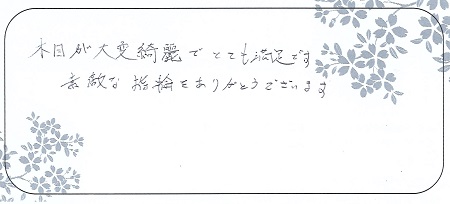 木目が大変綺麗でとても満足です
素敵な指輪をありがとうございます